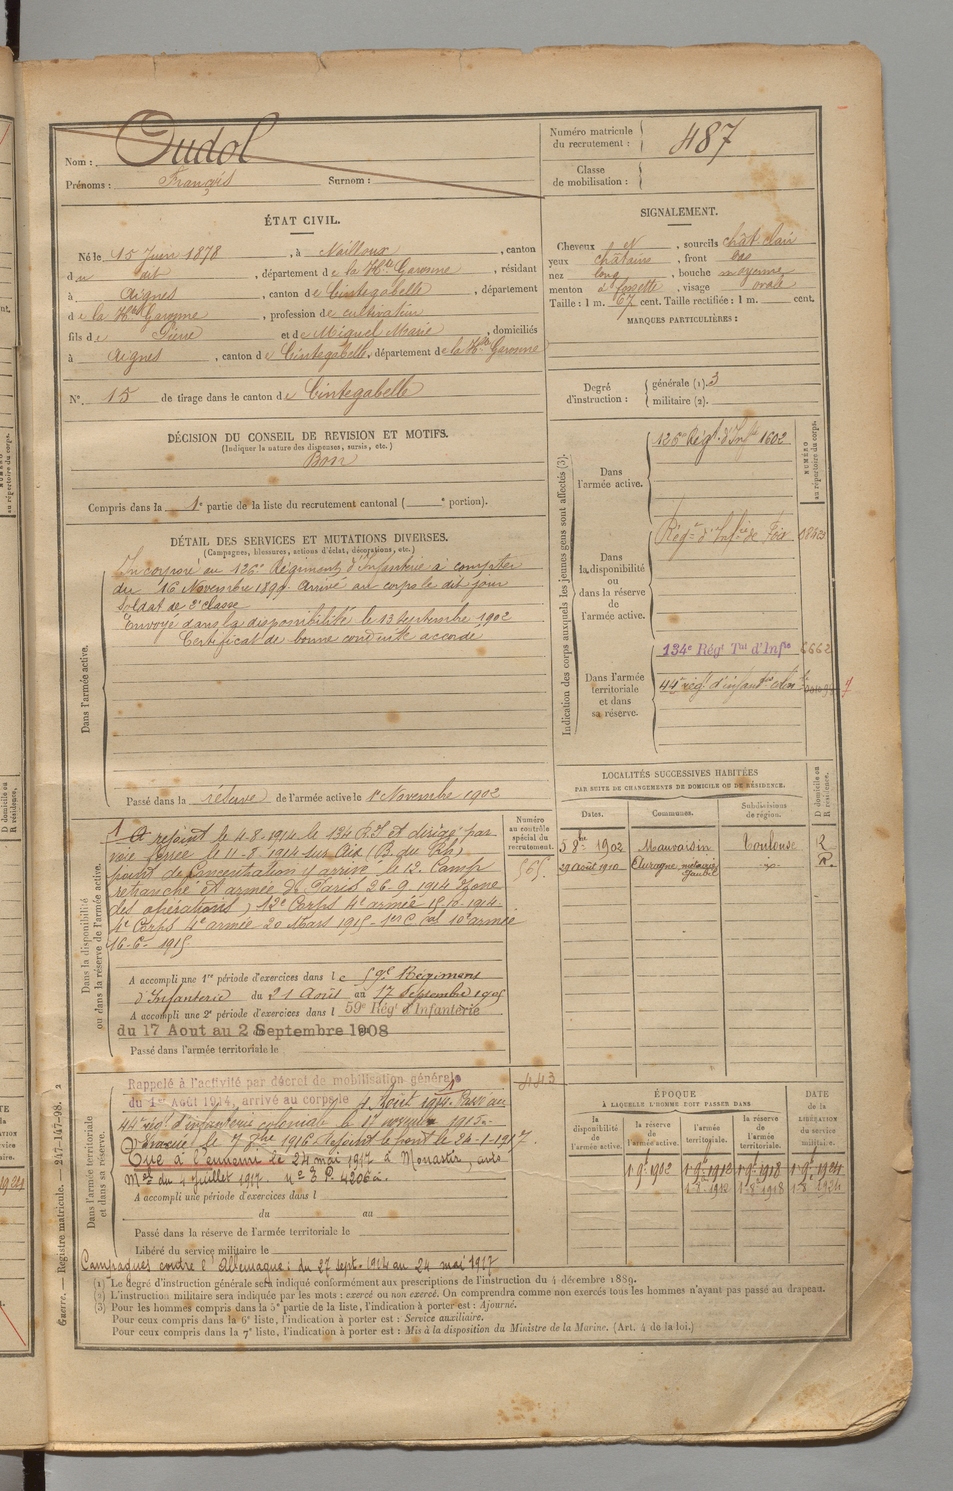 Nom : Oudol
Prénoms : François Surnom :
Numéro matricule du recrutement : 487
Classe de mobilisation :
ÉTAT CIVIL.
Né le 15 Juin 1878, à Nailloux, canton
du dit, département de la Hte Garonne, résidant
à Aignes, canton de Cintegabelle, département
de la Hte Garonne, profession de cultivateur
fils de Pierre et de Miquel Marie, domiciliés
à Aignes, canton de Cintegabelle, département de la Hte Garonne
N° 15 de tirage dans le canton de Cintegabelle
DÉCISION DU CONSEIL DE REVISION ET MOTIFS.
(Indiquer la nature des dispenses, sursis, etc.)
Bon
Compris dans la 1e partie de la liste du recrutement cantonal ( e portion).
DÉTAIL DES SERVICES ET MUTATIONS DIVERSES.
(Campagnes, blessures, actions d'éclat, décorations, etc.)
Dans l'armée active.
Incorporé au 126e Régiment d'Infanterie à compter
du 16 Novembre 1899. Arrivé au corps le dit jour
Soldat de 2e classe
Envoyé dans la disponibilité le 13 Septembre 1902
Certificat de bonne conduite accordé
Passé dans la réserve de l'armée active le 1er Novembre 1902
Dans la disponibilité
ou dans la réserve de l'armée active.
A rejoint le 4-8-1914 le 134 R.T. et dirigé par
voie ferrée le 11-8-1914 sur Aix (B. du Rh.)
point de concentration y arrive le 12. Camp
retranché et armée de Paris 26-9-1914 Zone
des opérations, 12e Corps 4e armée 15-12-1914
4e Corps 4e armée 20 Mars 1915 - 1er C. Cal 10e armée
16-6-1915
Numéro au contrôle spécial du recrutement.
565.
A accompli une 1re période d'exercices dans le 59e Régiment
d'Infanterie du 21 Août au 17 Septembre 1905
A accompli une 2e période d'exercices dans l 59e Régt d'Infanterie
du 17 Aout au 2 Septembre 1908
Passé dans l'armée territoriale le
443
Dans l'armée territoriale
et dans sa réserve.
Rappelé à l'activité par décret de mobilisation générale
du 1er Août 1914, arrivé au corps le 4 Août 1914. Passé au
44e régt d'infanterie coloniale le 17 1915.
Evacué le 7 8bre 1916. Rejoint le front le 24-1-1917.
Tué à l'ennemi le 24 mai 1917 à Monastir, avis
Mel du 4 juillet 1917. n° 3 P. 4206 a.
A accompli une période d'exercices dans l
du au
Passé dans la réserve de l'armée territoriale le
Libéré du service militaire le
Campagnes contre l'Allemagne : du 27 sept. 1914 au 24 mai 1917
SIGNALEMENT.
Cheveux N, sourcils chât. clair
yeux châtains, front bas
nez long, bouche moyenne
menton à fossette, visage ovale
Taille : 1 m. 67 cent. Taille rectifiée : 1 m. cent.
MARQUES PARTICULIÈRES :
Degré d'instruction : générale (1). 3
militaire (2).
Indication des corps auxquels les jeunes gens sont affectés (3).
NUMÉRO au répertoire du corps.
Dans l'armée active.
126me Régt d'Infie 1602
Dans la disponibilité ou dans la réserve de l'armée active.
Régt d'Infie de Foix
Dans l'armée territoriale et dans sa réserve.
134e Régt Tal d'Infie 6662
44e régt d'infantie
LOCALITÉS SUCCESSIVES HABITÉES
PAR SUITE DE CHANGEMENTS DE DOMICILE OU DE RÉSIDENCE.
Dates. Communes. Subdivisions de région. D domicile ou R résidence.
5 8bre 1902 Mauvaisin Toulouse R
29 Août 1910 R.
ÉPOQUE
À LAQUELLE L'HOMME DOIT PASSER DANS
DATE de la LIBÉRATION du service militaire.
la disponibilité de l'armée active. la réserve de l'armée active. l'armée territoriale. la réserve de l'armée territoriale.
1 9e 1902 1 9e 1912 1 9e 1918 1 9e 1924
1 8e 1912 1 8e 1918 1 8e 1924
(1) Le degré d'instruction générale sera indiqué conformément aux prescriptions de l'instruction du 4 décembre 1889.
(2) L'instruction militaire sera indiquée par les mots : exercé ou non exercé. On comprendra comme non exercés tous les hommes n'ayant pas passé au drapeau.
(3) Pour les hommes compris dans la 5e partie de la liste, l'indication à porter est : Ajourné.
Pour ceux compris dans la 6e liste, l'indication à porter est : Service auxiliaire.
Pour ceux compris dans la 7e liste, l'indication à porter est : Mis à la disposition du Ministre de la Marine. (Art. 4 de la loi.)
Guerre. — Registre matricule. — 247-147-98. 2